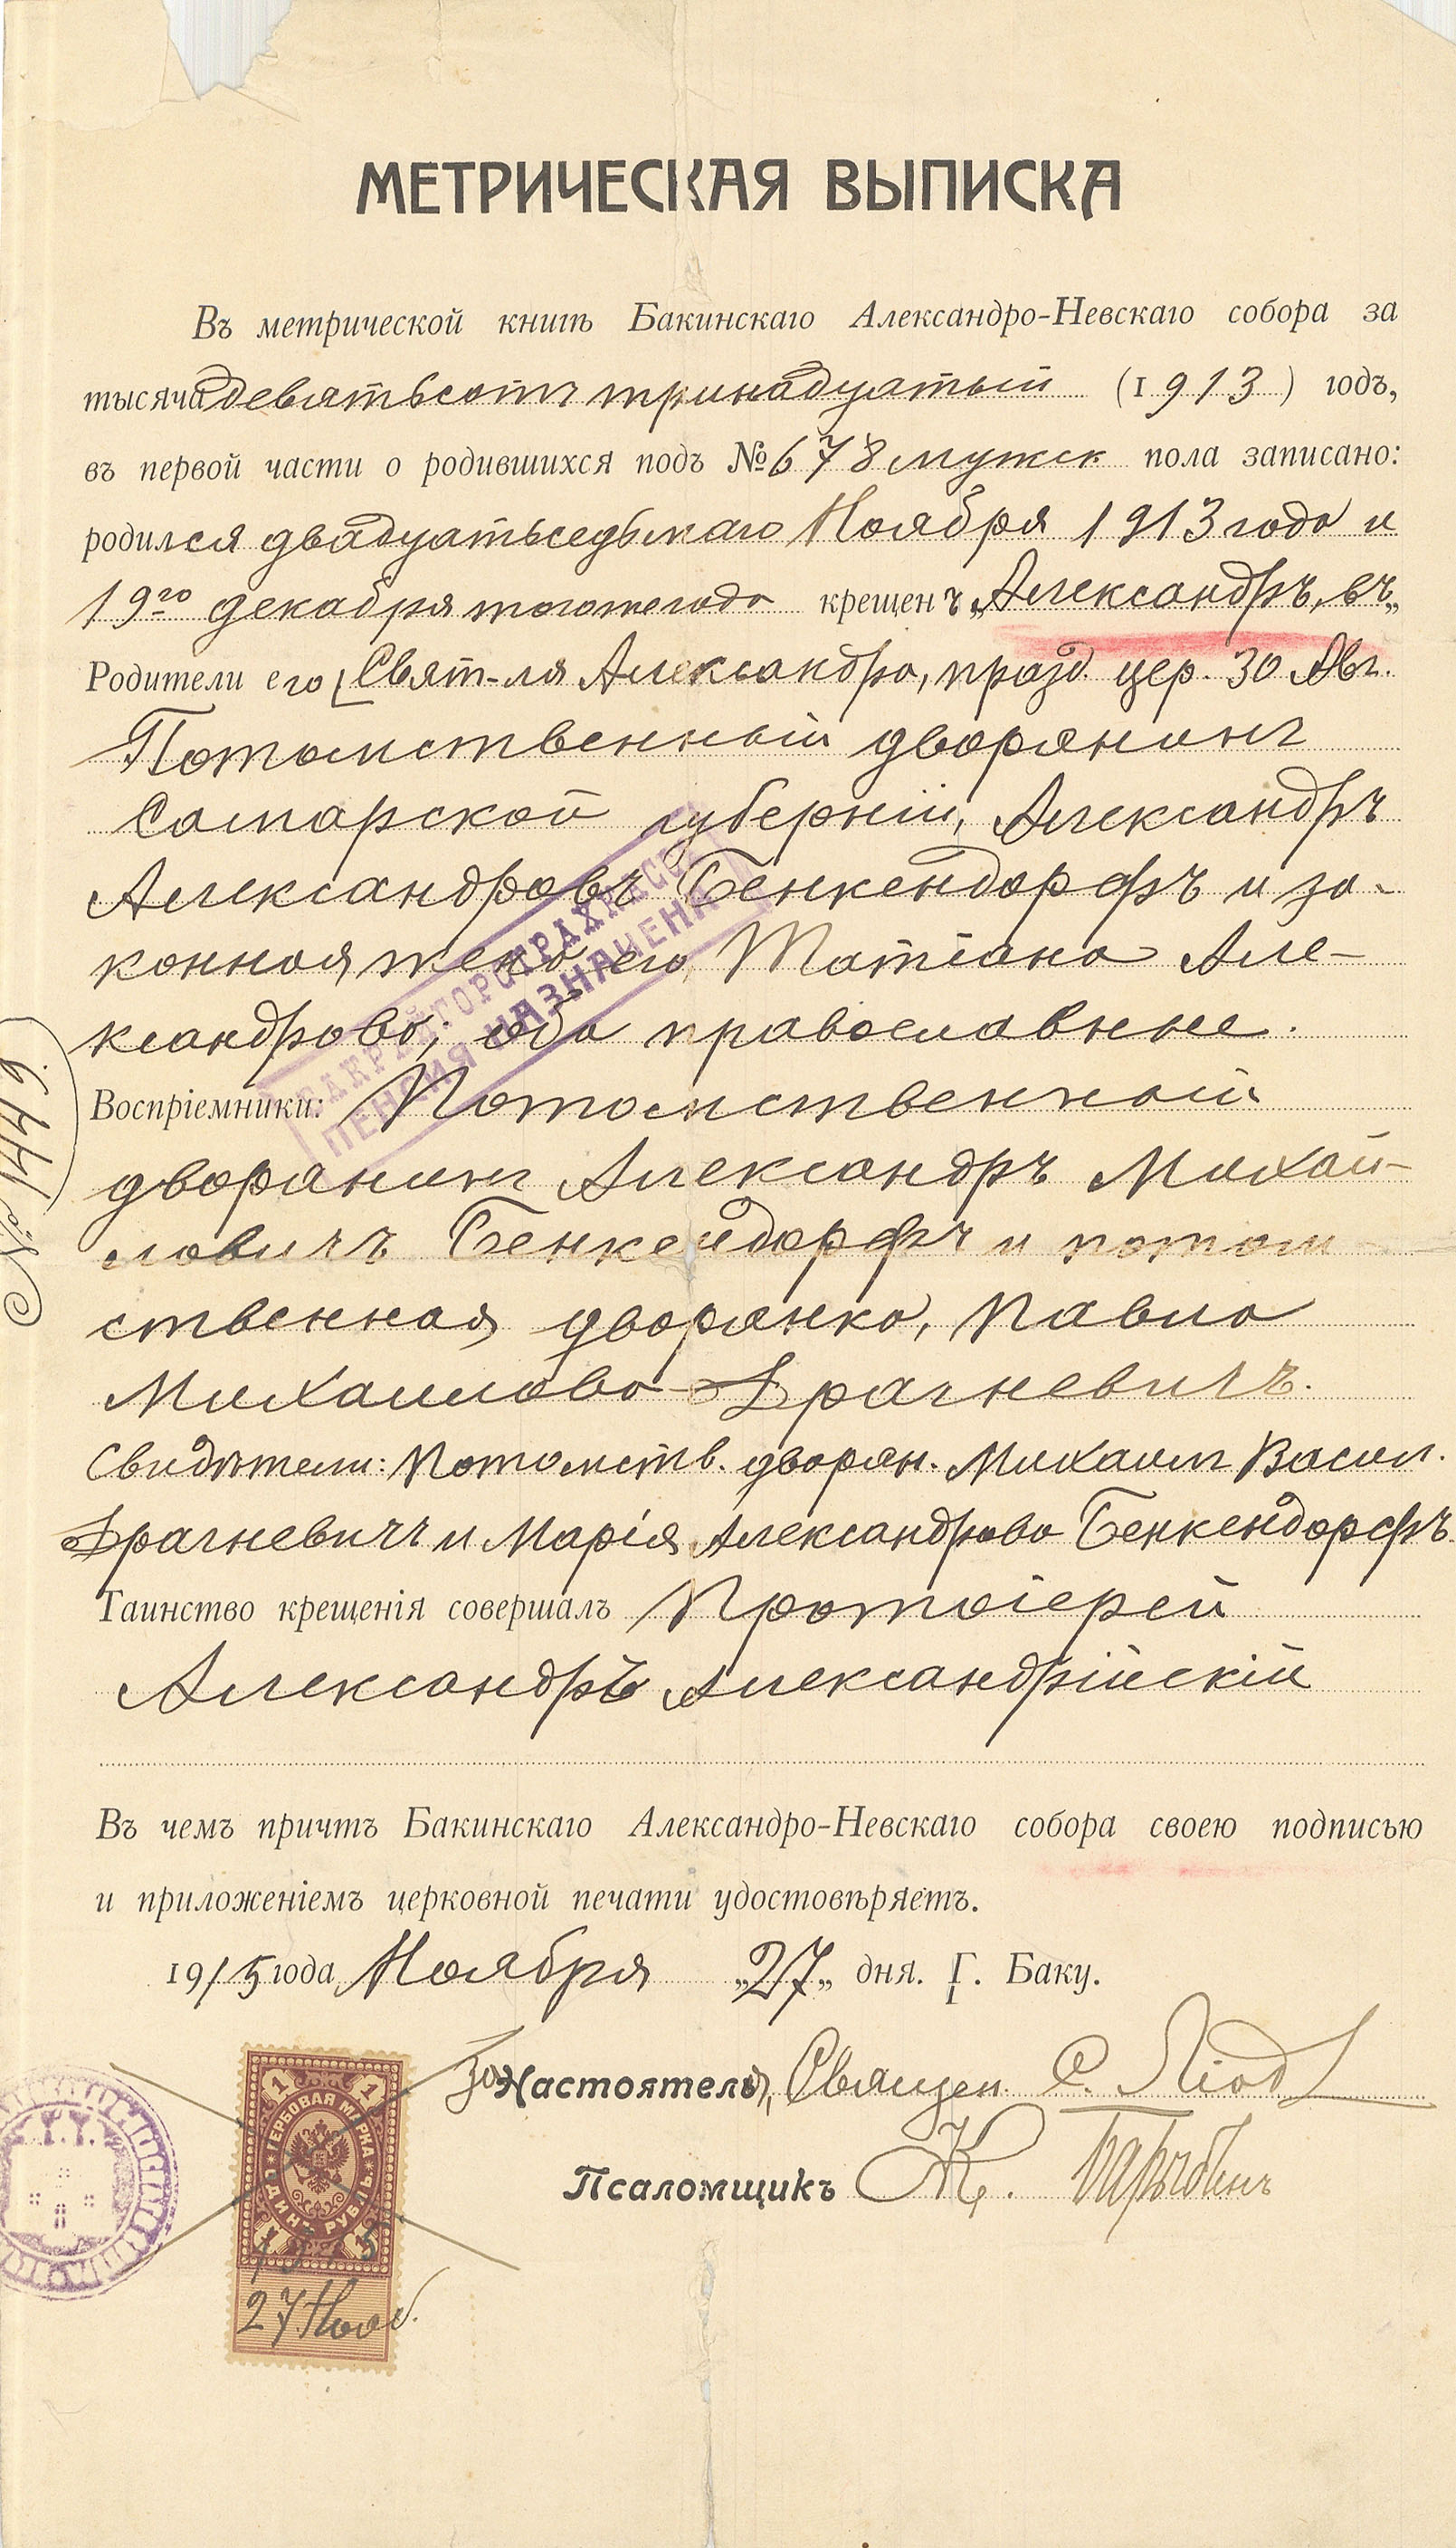 МЕТРИЧЕСКАЯ ВЫПИСКА
Въ метрической книгѣ Бакинскаго Александро-Невскаго собора за
тысяча девятьсотъ тринадцатый (1913) годъ,
въ первой части о родившихся подъ № 678 мужск пола записано:
родился двадцатьседьмаго Ноября 1913 года и
19го декабря тогоже года крещенъ „Александръ, въ„
Родители его [Свят-ля Александра, празд. цер. 30 Авг.
Потомственный дворянинъ
Самарской губерніи, Александръ
Александровъ Бенкендорфъ и за-
конная жена его, Татіана Але-
ксандрова; оба православные.
ЗАКРАЙГОРСТРАХКАССА
ПЕНСИЯ НАЗНАЧЕНА
Воспріемники: Потомственный
дворянинъ Александръ Михай-
ловичъ Бенкендорфъ и потом-
ственная дворянка, Павла
Михаилова Драгневичъ.
Свидѣтели: Потомств. дворян. Михаилъ Васил.
Драгневичъ и Марія Александрова Бенкендорфъ.
Таинство крещенія совершалъ Протоіерей
Александръ Александрійскій
Въ чемъ причтъ Бакинскаго Александро-Невскаго собора своею подписью
и приложеніемъ церковной печати удостовѣряетъ.
1915 года Ноября „27„ дня. Г. Баку.
За Настоятеля, Священ. С.
Псаломщикъ
№ 1446.
ГЕРБОВАЯ МАРКА
ОДИНЪ РУБЛЬ
1 1
1 1
1915
27 Нояб.